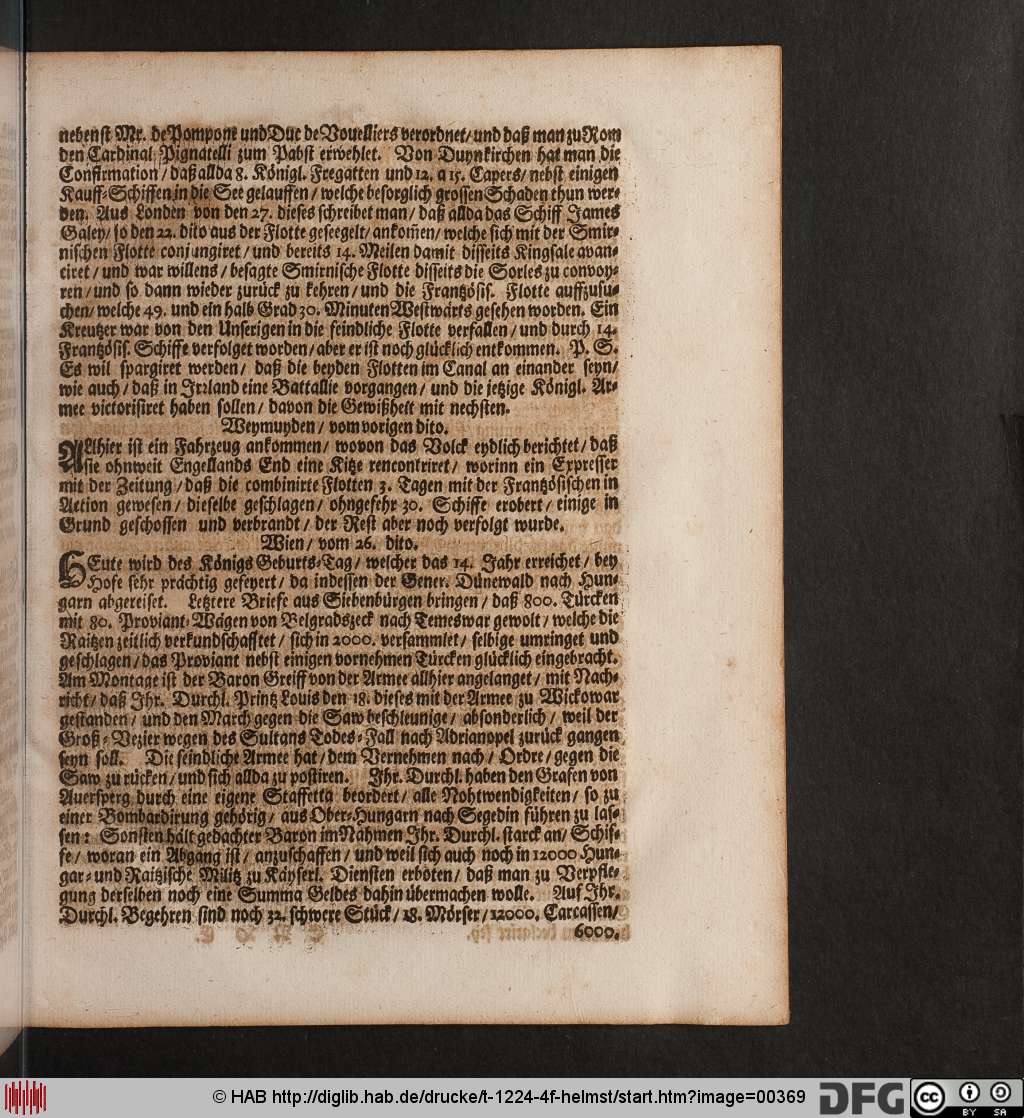 nebenst Mr. de Pompone und Duc de Vouelliers verordnet/ und daß man zu Rom
den Cardinal Pignatelli zum Pabst erwehlet. Von Duynkirchen hat man die
Confirmation/ daß allda 8. Königl. Fregatten und 12. a 15. Capers/ nebst einigen
Kauff-Schiffen in die See gelauffen/ welche besorglich grossen Schaden thun wer-
den. Aus Londen von den 27. dieses schreibet man/ daß allda das Schiff James
Galey/ so den 22. dito aus der Flotte geseegelt/ ankom̃en/ welche sich mit der Smir-
nischen Flotte conjungiret/ und bereits 14. Meilen damit disseits Kingsale avan-
ciret/ und war willens/ besagte Smirnische Flotte disseits die Sorles zu convoy-
ren/ und so dann wieder zurück zu kehren/ und die Frantzösis. Flotte auffzusu-
chen/ welche 49. und ein halb Grad 30. Minuten Westwärts gesehen worden. Ein
Kreutzer war von den Unserigen in die feindliche Flotte verfallen/ und durch 14.
Frantzösis. Schiffe verfolget worden/ aber er ist noch glücklich entkommen. P. S.
Es wil spargiret werden/ daß die beyden Flotten im Canal an einander seyn/
wie auch/ daß in Irrland eine Battallie vorgangen/ und die jetzige Königl. Ar-
mee victorisiret haben sollen/ davon die Gewißheit mit nechsten.
Weymuyden/ vom vorigen dito.
ALlhier ist ein Fahrzeug ankommen/ wovon das Volck eydlich berichtet/ daß
sie ohnweit Engellands End eine Kitze rencontriret/ worinn ein Expresser
mit der Zeitung/ daß die combinirte Flotten 3. Tagen mit der Frantzösischen in
Action gewesen/ dieselbe geschlagen/ ohngefehr 30. Schiffe erobert/ einige in
Grund geschossen und verbrandt/ der Rest aber noch verfolgt wurde.
Wien/ vom 26. dito.
HEute wird des Königs Geburts-Tag/ welcher das 14. Jahr erreichet/ bey
Hofe sehr prächtig gefeyert/ da indessen der Gener. Dünewald nach Hun-
garn abgereiset. Letztere Briefe aus Siebenbürgen bringen/ daß 800. Türcken
mit 80. Proviant-Wägen von Belgradszeck nach Temeswar gewolt/ welche die
Raitzen zeitlich verkundschafftet/ sich in 2000. versammlet/ selbige umringet und
geschlagen/ das Proviant nebst einigen vornehmen Türcken glücklich eingebracht.
Am Montage ist der Baron Greiff von der Armee allhier angelanget/ mit Nach-
richt/ daß Ihr. Durchl. Printz Louis den 18. dieses mit der Armee zu Wickowar
gestanden/ und den March gegen die Saw beschleunige/ absonderlich/ weil der
Groß-Vezier wegen des Sultans Todes-Fall nach Adrianopel zurück gangen
seyn soll. Die feindliche Armee hat/ dem Vernehmen nach/ Ordre/ gegen die
Saw zu rücken/ und sich allda zu postiren. Ihr. Durchl. haben den Grafen von
Auersperg durch eine eigene Staffetta beordert/ alle Nohtwendigkeiten/ so zu
einer Bombardirung gehörig/ aus Ober-Hungarn nach Segedin führen zu las-
sen: Sonsten hält gedachter Baron im Nahmen Ihr. Durchl. starck an/ Schif-
fe/ woran ein Abgang ist/ anzuschaffen/ und weil sich auch noch in 12000 Hun-
gar- und Raitzische Militz zu Käyserl. Diensten erboten/ daß man zu Verpfle-
gung derselben noch eine Summa Geldes dahin übermachen wolle. Auf Ihr.
Durchl. Begehren sind noch 32. schwere Stück/ 18. Mörser/ 12000. Carcassen/
6000.
© HAB http://diglib.hab.de/drucke/t-1224-4f-helmst/start.htm?image=00369
DFG
cc
BY SA